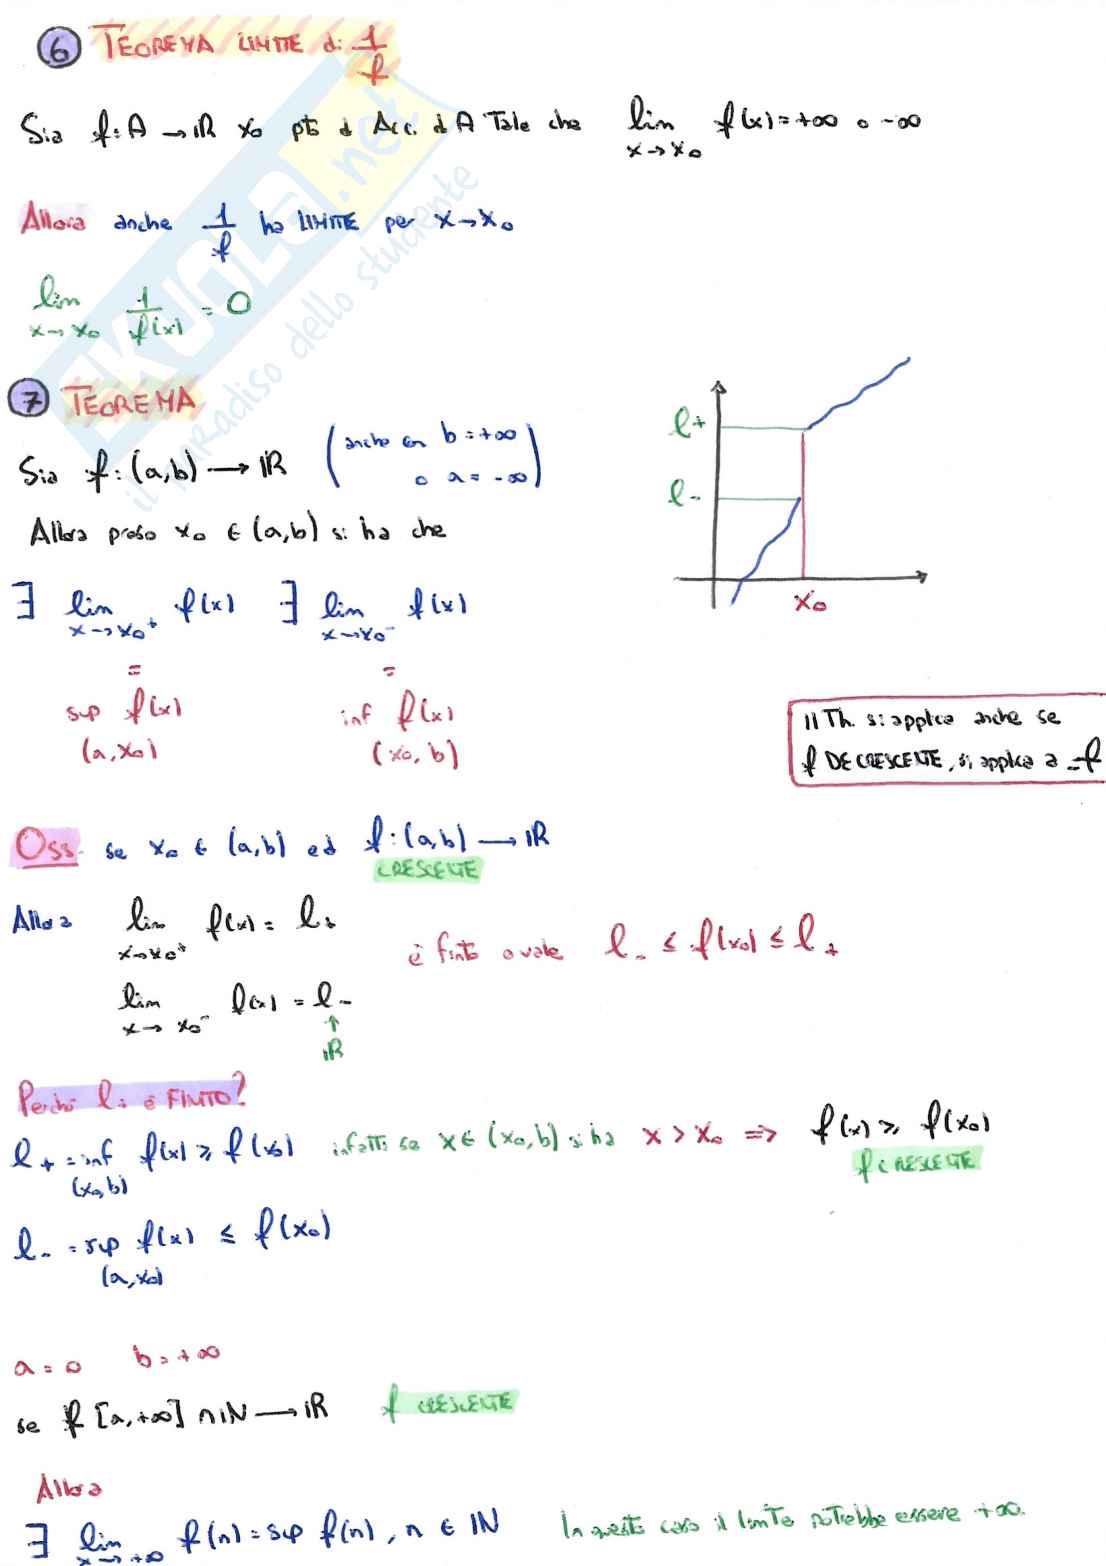 6 TEOREMA LIMITE di 1/f
Sia f: A → IR x₀ pto d Acc. d A Tale che lim x→x₀ f(x) = +∞ o -∞
Allora anche 1/f ha LIMITE per x→x₀
lim x→x₀ 1/f(x) = 0
7 TEOREMA
Sia f: (a,b) → IR (anche con b = +∞
o a = -∞)
Allora preso x₀ ∈ (a,b) si ha che
∃ lim x→x₀⁺ f(x) ∃ lim x→x₀⁻ f(x)
= =
sup f(x) inf f(x)
(a,x₀) (x₀,b)
l+
l-
x₀
Il Th. si applica anche se
f DECRESCENTE, si applica a -f
Oss. se x₀ ∈ (a,b) ed f: (a,b) → IR
CRESCENTE
Allora lim x→x₀⁺ f(x) = l+
è finito e vale l- ≤ f(x₀) ≤ l+
lim x→x₀⁻ f(x) = l-
↑
IR
Perché l+ è FINITO?
l+ = inf f(x) ≥ f(x₀) infatti se x ∈ (x₀,b) si ha x > x₀ ⇒ f(x) ≥ f(x₀)
(x₀,b) f CRESCENTE
l- = sup f(x) ≤ f(x₀)
(a,x₀)
a = 0 b = +∞
se f [a,+∞] ∩ IN → IR f CRESCENTE
Allora
∃ lim x→+∞ f(n) = sup f(n), n ∈ IN In questo caso il limite potrebbe essere +∞.
SKUOLA.net
il paradiso dello studente